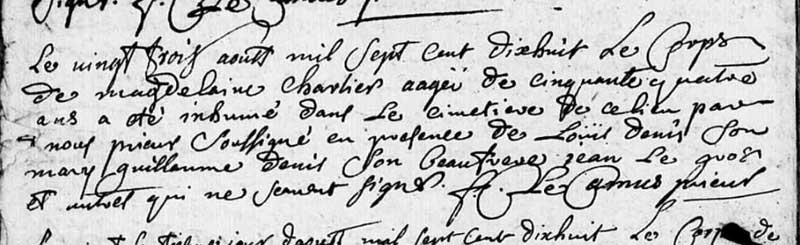 signé. f. Le Camus
Le vingt trois aoust mil sept cent dixhuit Le Corps
de magdelaine Charlier aageé de cinquante quatre
ans a eté inhumé dans Le cimetiere de ce lieu par
nous prieur Soussigné en presence de Loüis denis Son
mary guillaume denis Son beaufrere jean Le gros
et autres qui ne scavent signer. ff. Le Camus prieur
jour d'aoust mil sept cent dixhuit Le Corps de